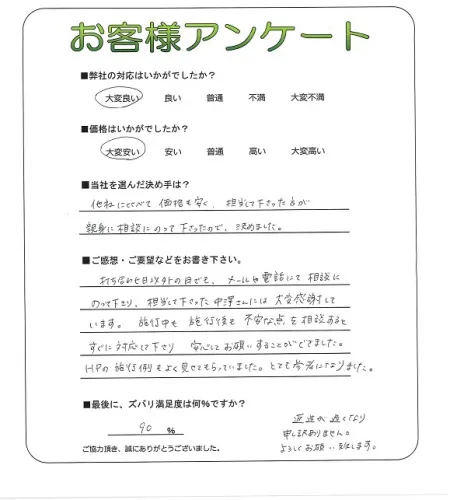 お客様アンケート
■弊社の対応はいかがでしたか?
大変良い 良い 普通 不満 大変不満
■価格はいかがでしたか?
大変安い 安い 普通 高い 大変高い
■当社を選んだ決め手は?
他社に比べて価格も安く、担当して下さった方が
親身に相談にのって下さったので、決めました。
■ご感想・ご要望などをお書き下さい。
打ち合わせ日以外の日でも、メールや電話にて相談に
のって下さり、担当して下さった中澤さんには大変感謝して
います。施行中も施行後も不安な点を相談すると
すぐに対応して下さり 安心してお願いすることができました。
HPの施行例もよく見せてもらっていました。とても参考になりました。
■最後に、ズバリ満足度は何%ですか?
90 %
返送が遅くなり
申し訳ありません。
よろしくお願い致します。
ご協力頂き、誠にありがとうございました。